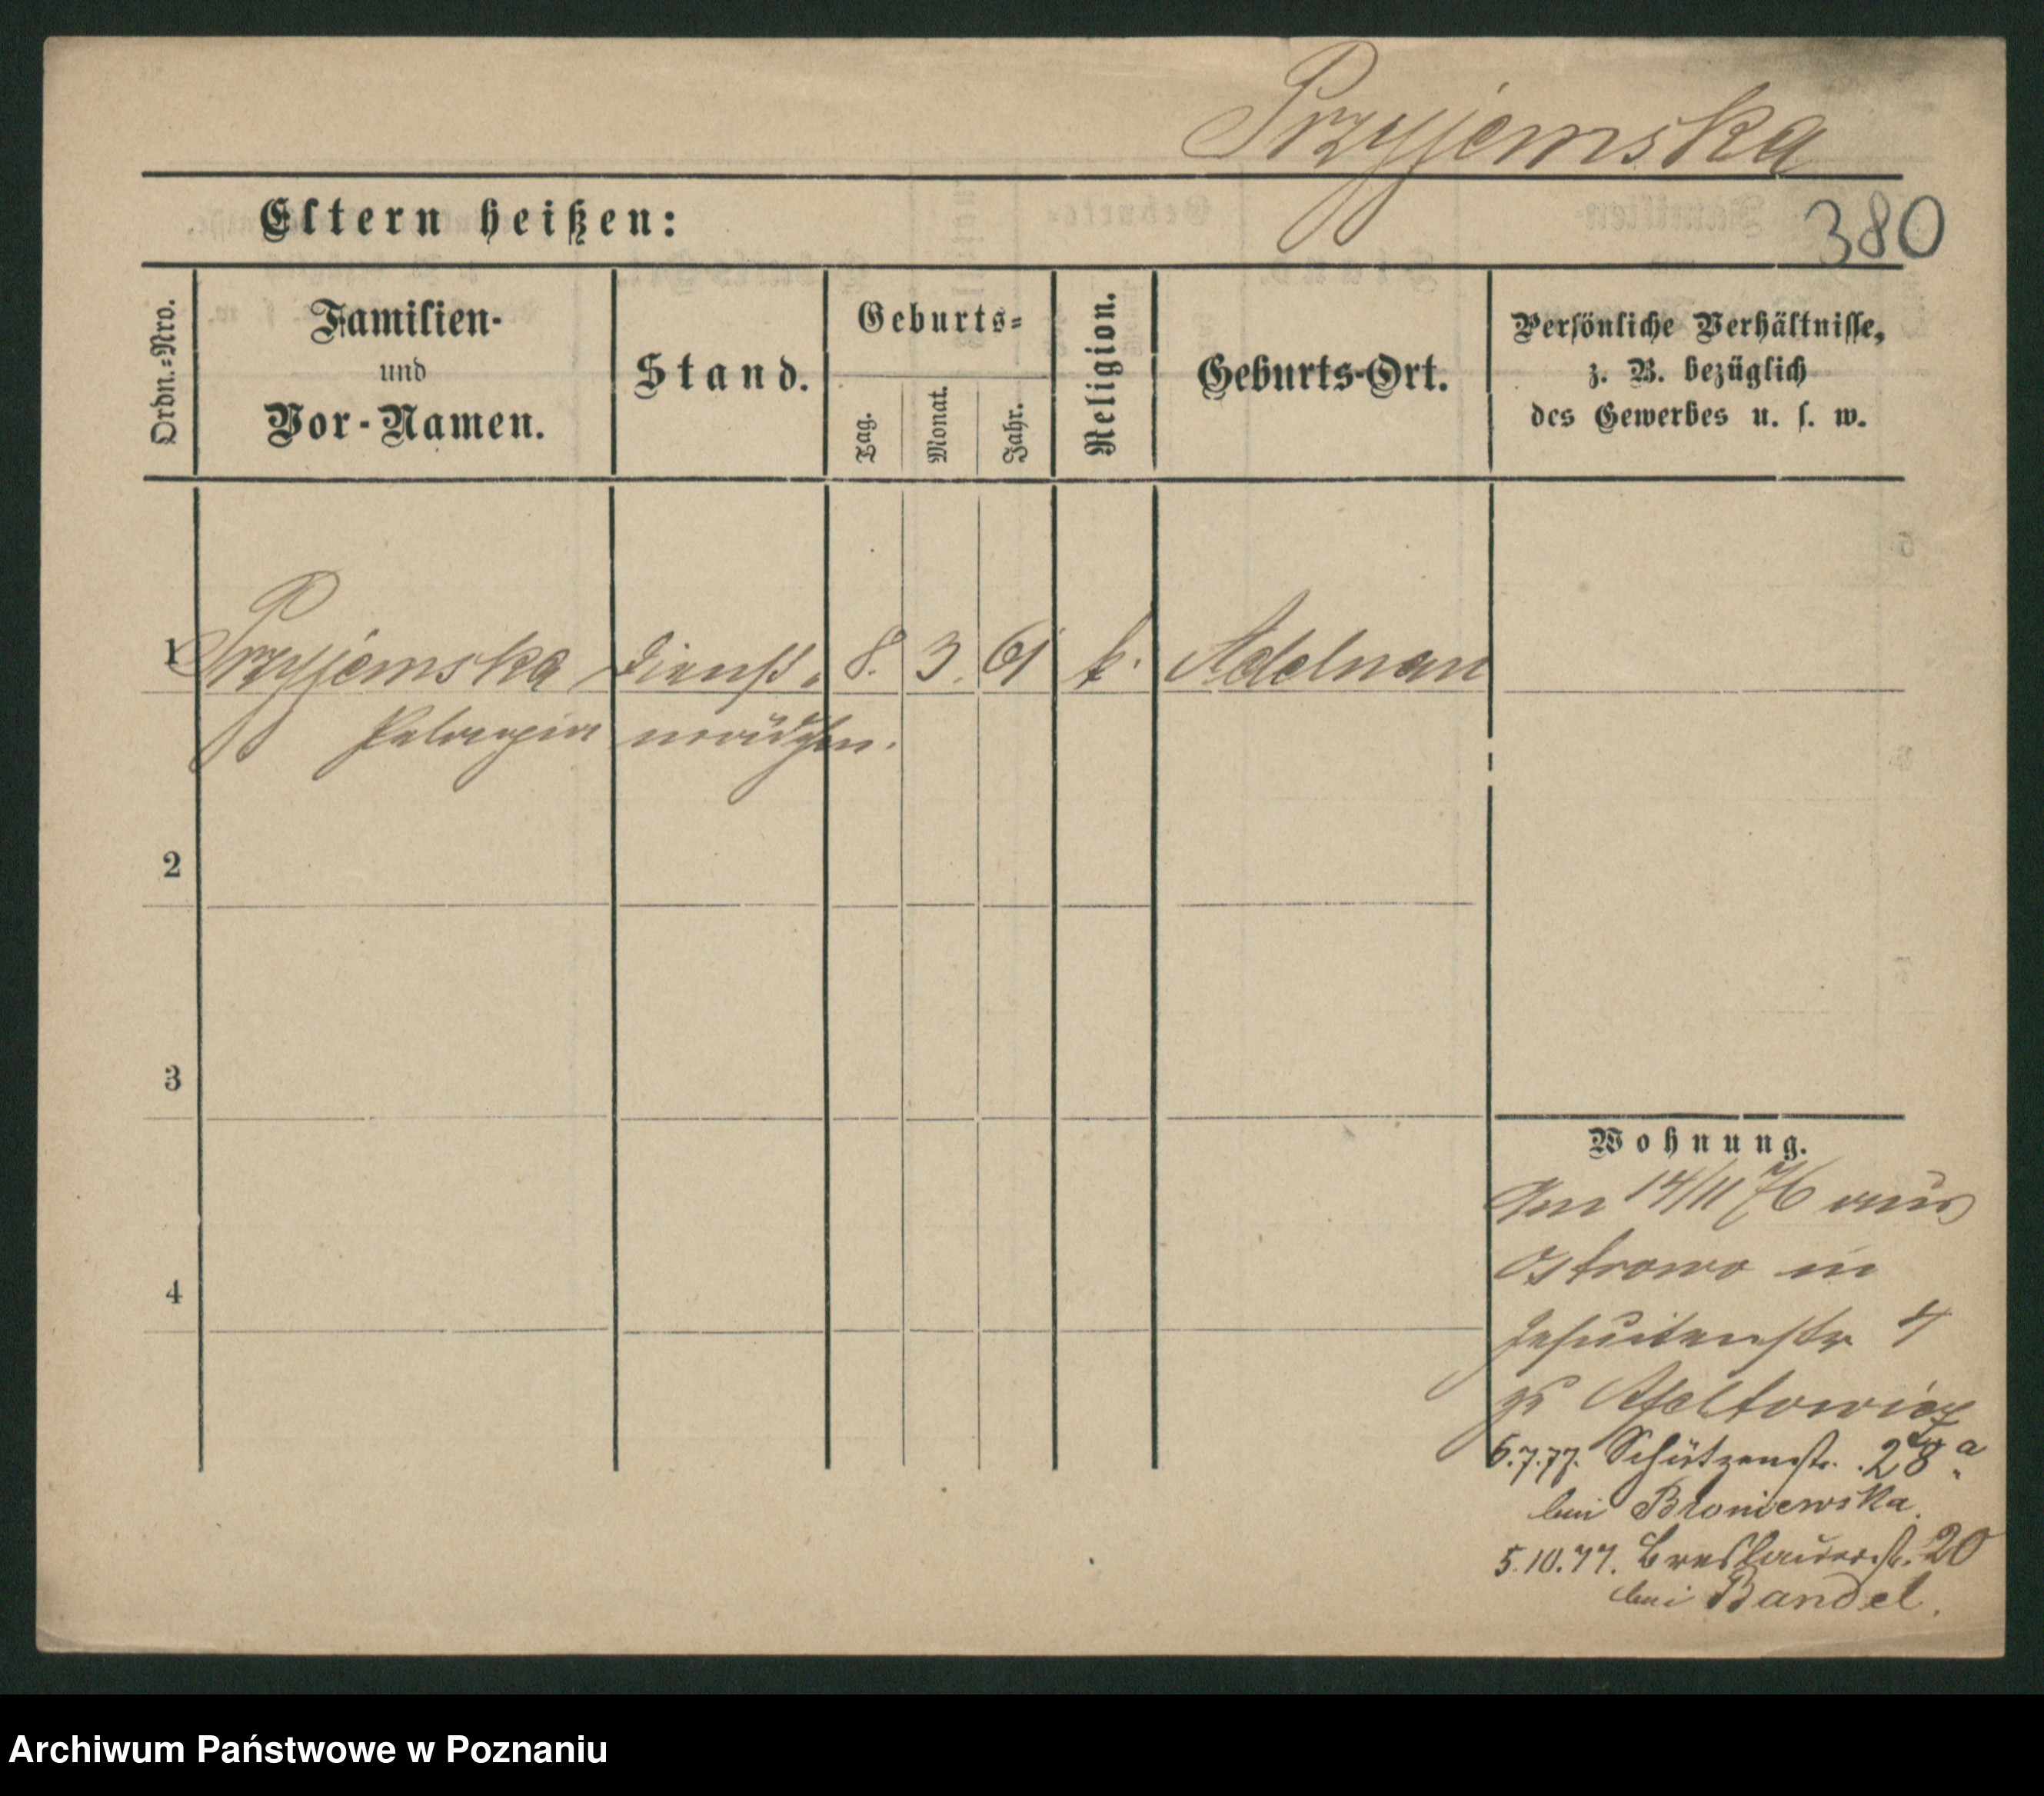 Przyjemska
Eltern heißen:
380
Ordn.=Nro.
Familien-
und
Vor-Namen.
Stand.
Geburts=
Tag.
Monat.
Jahr.
Religion.
Geburts-Ort.
Persönliche Verhältnisse,
z. B. bezüglich
des Gewerbes u. s. w.
1 Przyjemska Dienst= 8. 3. 61 k. Adelnau
Pelagia mädchen.
2
3
4
Wohnung.
Am 14/11 76 aus
Ostrowo in
Jesuitenstr 4
zu Afeltowicz
6.7.77. Schützenstr. 28a.
bei Broniewska.
5.10.77. Breslauerstr. 20
bei Bandel.
Archiwum Państwowe w Poznaniu